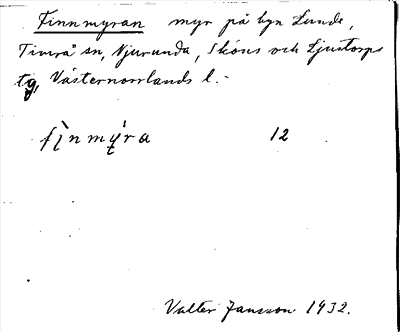 Finnmyran myr på byn Lunde,
Timrå sn, Njurunda, Sköns och Ljustorps
tg, Västernorrlands l.-
fı̀nmý̨ra 12
Valter Jansson 1932.